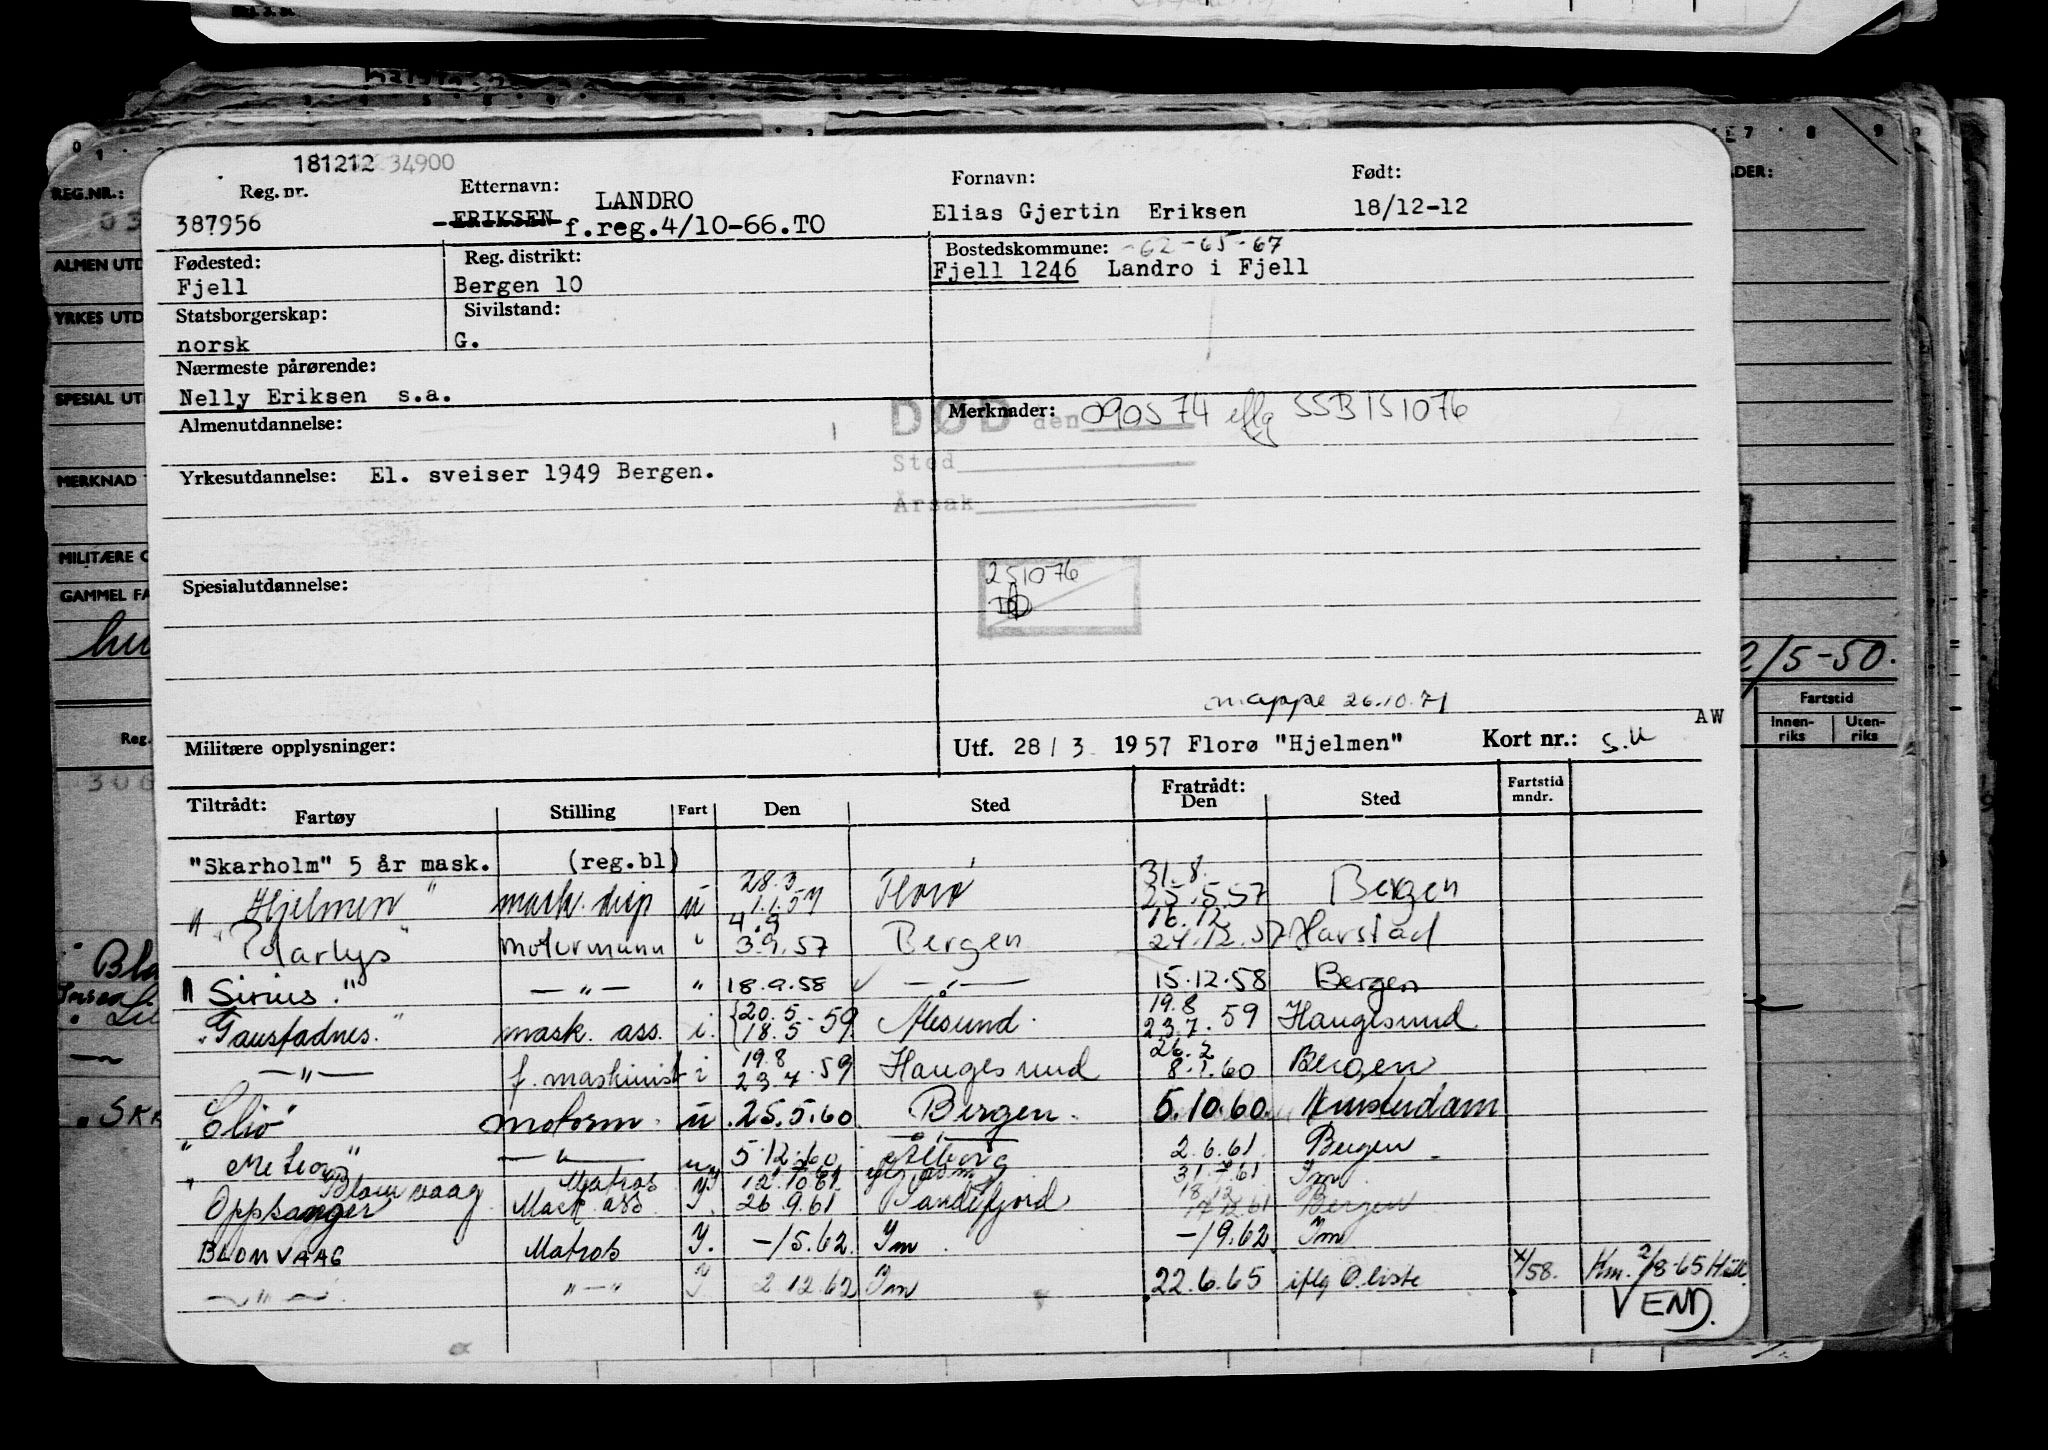 181212 34900
Reg. nr. Etternavn: Fornavn: Født:
387956 ERIKSEN LANDRO f.reg.4/10-66.TO Elias Gjertin Eriksen 18/12-12
Fødested: Reg. distrikt: Bostedskommune: -62-65-67
Fjell Bergen 10 Fjell 1246 Landro i Fjell
Statsborgerskap: Sivilstand:
norsk G.
Nærmeste pårørende:
Nelly Eriksen s.a.
Almenutdannelse: DØD den Merknader: 090574 eflg SSB 151076
Sted
Yrkesutdannelse: El. sveiser 1949 Bergen.
Årsak
Spesialutdannelse: 251076
mappe 26.10.71
AW
Militære opplysninger: Utf. 28/3 1957 Florø "Hjelmen" Kort nr.: s.u
Tiltrådt: Fratrådt: Fartstid mndr.
Fartøy Stilling Fart Den Sted Den Sted
"Skarholm" 5 år mask. (reg.bl)
"Hjelmen" mask. disp u 28.3 1.1.57 Florø 31.8. 25.5.57 Bergen
"Polarlys" motormann " 4.9 3.9.57 Bergen 16.12 24.12.57 Harstad
"Sirius." — " — " 18.9.58 — " — 15.12.58 Bergen
"Gaustadnes." mask. ass. i. 20.5 18.5-59 Ålesund. 19.8 23.7.59 Haugesund
— " — f. maskinist i 19.8 23.7.59 Haugesund 26.2 8.1.60 Bergen
"Clio" motorm. u .25.5.60 Bergen. 5.10.60. Amsterdam
"Meteor" — " — 5.12.60 Ålborg 2.6.61 Bergen
Blomvaag Matros 12.10.61 31.7.61 Ym
Oppsanger Mask. ass Y. 26.9.61 Sandefjord 18.12 61 Bergen
BLOMVAAG Matros Y. -/5.62. Ym -/9.62 Ym
— " — " — " Y 2.12.62 Ym 22.6.65 iflg O. liste x/58. Km. 2/8-65 Hill
VEND.
REG.NR.:
03
ALMEN UTD
YRKES UTD
SPESIAL UT
MERKNAD
MILITÆRE O
GAMMEL FA
Reg.
306
Bla
SKA
2/5-50.
Fartstid
Innen-riks Uten-riks